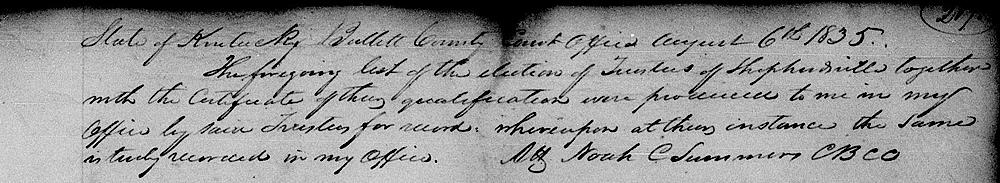 State of Kentucky Bullett County Court Office August 6th 1835.
The foregoing list of the election of Trustees of Shepherdsville together
with the Certificate of their qualification were produced to me in my
Office by said Trustees for record: whereupon at their instance the same
is truly recorded in my Office. Att Noah C Summers C B C C